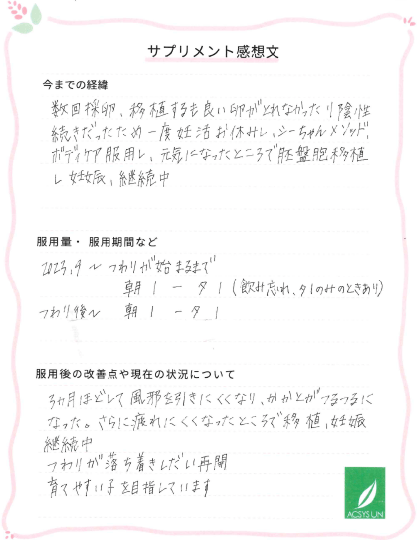 サプリメント感想文
今までの経緯
数回採卵、移植するも良い卵がとれなかったり陰性
続きだったため一度妊活お休みし、シーちゃんメソッド、
ボディケア服用し、元気になったところで胚盤胞移植
し妊娠、継続中
服用量・服用期間など
2023.9〜つわりが始まるまで
朝1ー夕1(飲み忘れ、夕1のみのときあり)
つわり後〜 朝1ー夕1
服用後の改善点や現在の状況について
3ヶ月ほどして風邪を引きにくくなり、かかとがつるつるに
なった。さらに疲れにくくなったところで移植、妊娠
継続中
つわりが落ち着きしだい再開
育てやすい子を目指しています
ACSYSUN